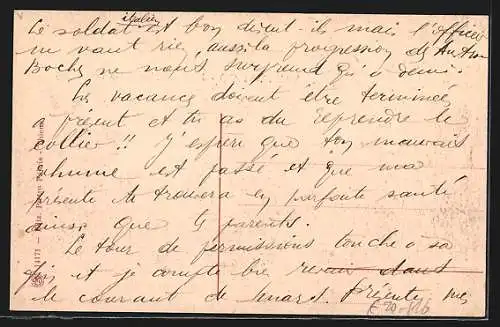 italien
Le soldat est bon disent-ils mais l'officier
ne vaut rien, aussi la progression des Austro
Boches ne nous surprend qu'à demi.
Les vacances doivent être terminées
à présent et tu as du reprendre le
collier!! J'espère que ton mauvais
rhume est passé et que ma
présente te trouvera en parfaite santé
ainsi que tes parents.
Le tour de permissions touche à sa
fin et je compte bien revenir dans
le courant de mars. Présente mes